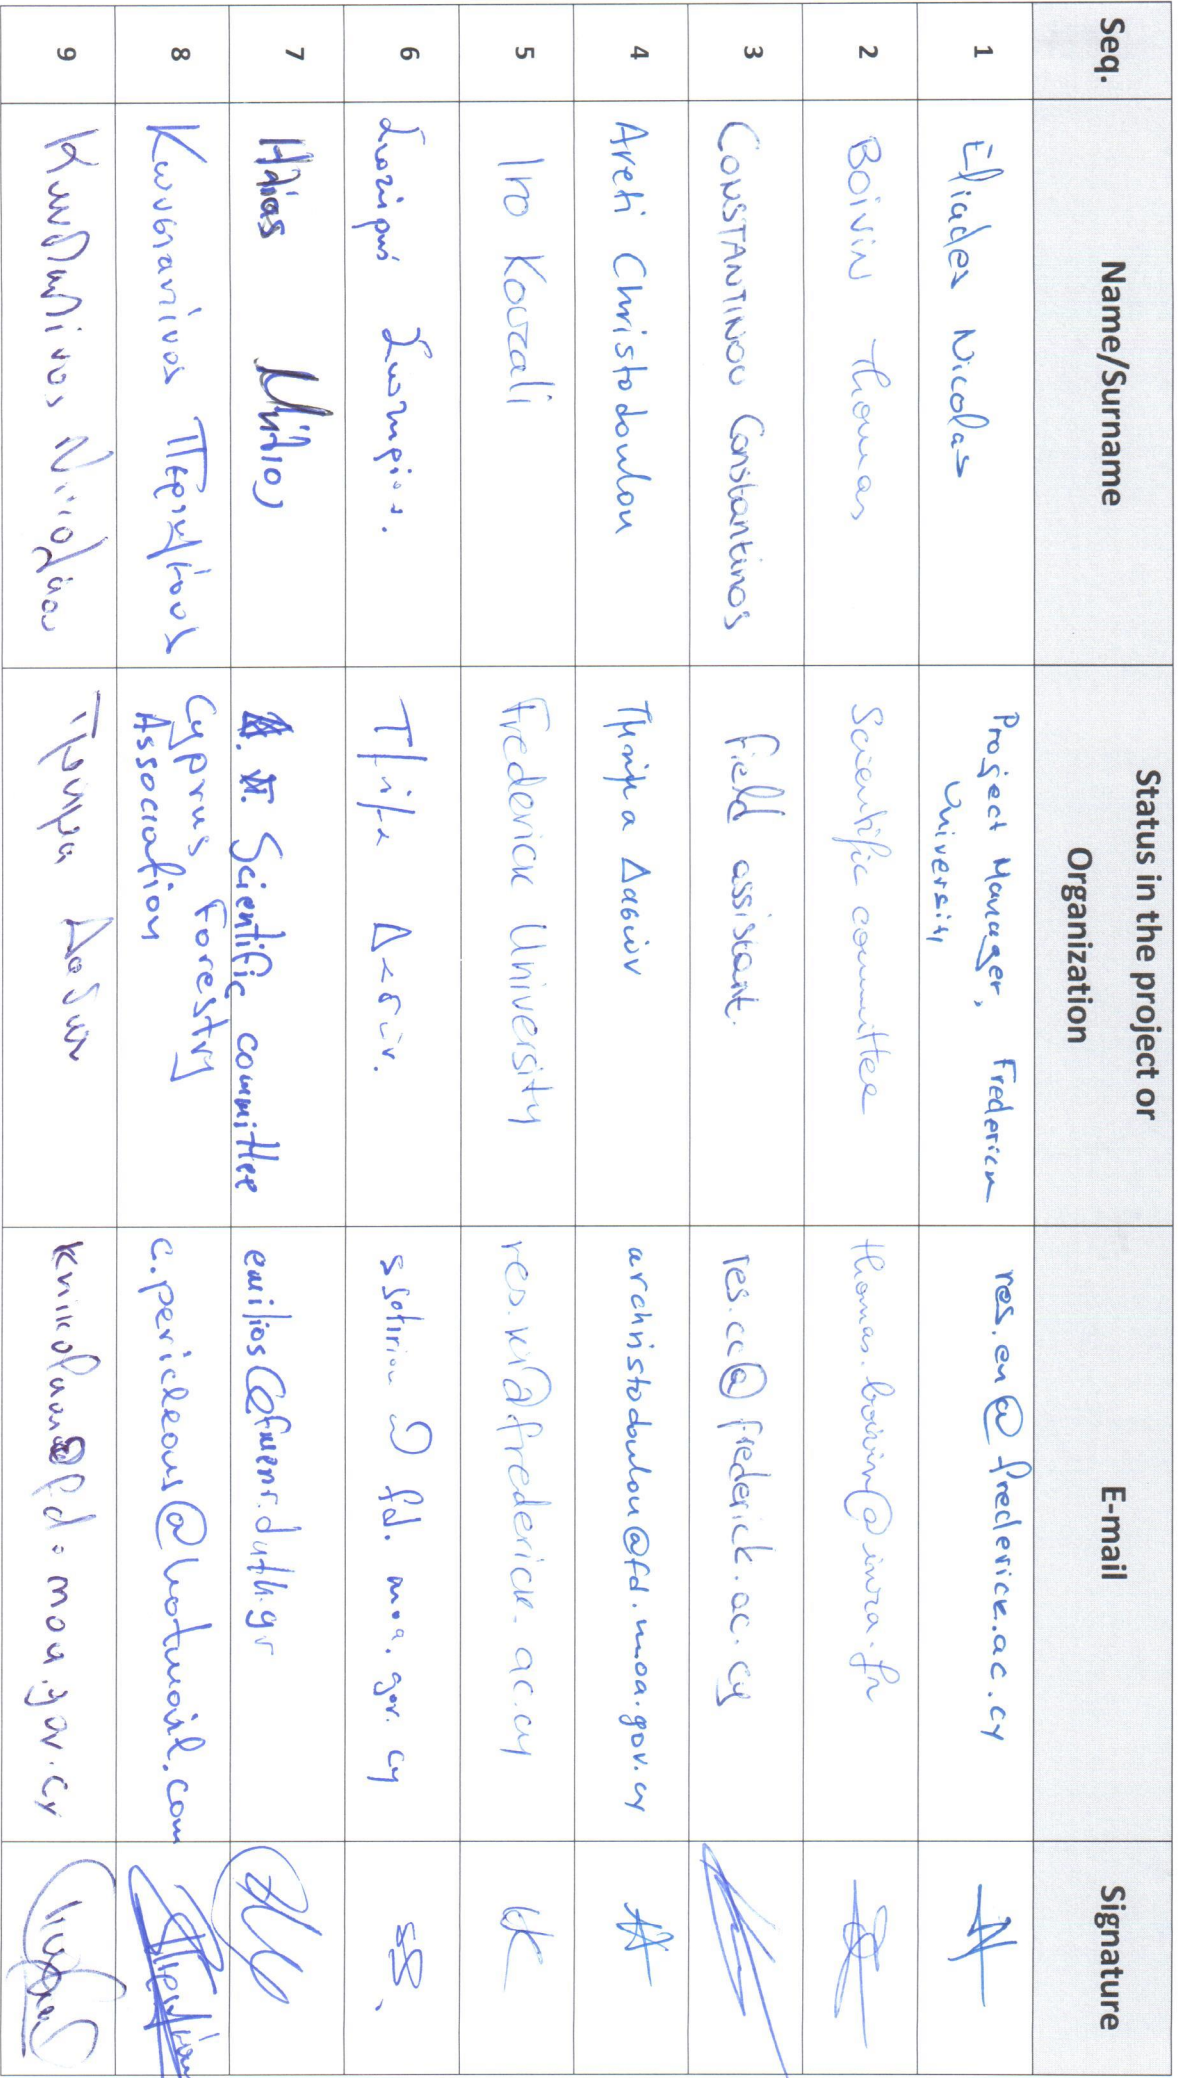 Seq. Name/Surname Status in the project or Organization E-mail Signature
1 Eliades Nicolas Project Manager, Frederick University res.en@frederick.ac.cy
2 Boivin Thomas Scientific committee thomas.boivin@inra.fr
3 CONSTANTINOU Constantinos field assistant. res.cc@frederick.ac.cy
4 Areti Christodoulou Τμήμα Δασών archristodoulou@fd.moa.gov.cy
5 Iro Kouzali Frederick University res.ki@frederick.ac.cy
6 Σωτήρης Σωτηρίου. Τμήμα Δασών. ssotiriou@fd.moa.gov.cy
7 Ηλίας Μήλιος Scientific committee emilios@fmenr.duth.gr
8 Κωνσταντίνος Περικλέους Cyprus Forestry Association c.pericleous@hotmail.com
9 Κωνσταντίνος Νικολάου Τμήμα Δασών knikolaou@fd.moa.gov.cy